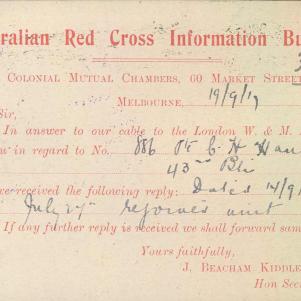 ralian Red Cross Information Bu
COLONIAL MUTUAL CHAMBERS, 60 MARKET STREE
MELBOURNE, 19/9/17
Sir,
In answer to our cable to the London W. & M.
w in regard to No. 886 Pte C. H. Han
43rd Bn
ve received the following reply: Dated 14/9/1
July 27th rejoined unit
If any further reply is received we shall forward sam
Yours faithfully,
J. BEACHAM KIDDLE
Hon Sec